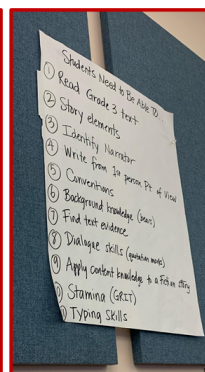 Students Need to Be Able To
① Read Grade 3 text
② Story elements
③ Identify Narrator
④ Write from 1st person Pt of View
⑤ Conventions
⑥ Background knowledge (bears)
⑦ Find text evidence
⑧ Dialogue skills (quotation marks)
⑨ Apply content knowledge to a fiction story
Stamina (GRIT)
Typing Skills